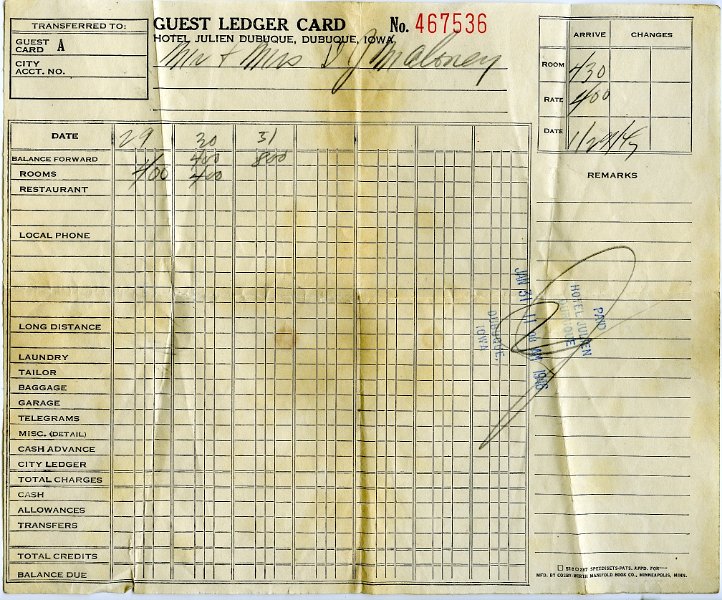 TRANSFERRED TO:
GUEST CARD A
CITY ACCT. NO.
GUEST LEDGER CARD No. 467536
HOTEL JULIEN DUBUQUE, DUBUQUE, IOWA
Mr & Mrs D J Maloney
ARRIVE CHANGES
ROOM 430
RATE 400
DATE 1/29/45
REMARKS
DATE 29 30 31
BALANCE FORWARD 400 800
ROOMS 4/00 400
RESTAURANT
LOCAL PHONE
LONG DISTANCE
LAUNDRY
TAILOR
BAGGAGE
GARAGE
TELEGRAMS
MISC. (DETAIL)
CASH ADVANCE
CITY LEDGER
TOTAL CHARGES
CASH
ALLOWANCES
TRANSFERS
TOTAL CREDITS
BALANCE DUE
PAID
HOTEL JULIEN
DUBUQUE
JAN 31 11 AM
DUBUQUE,
IOWA
SPEEDISETS-PATS. APPD. FOR
MFD. BY COSBY-WIRTH MANIFOLD BOOK CO., MINNEAPOLIS, MINN.